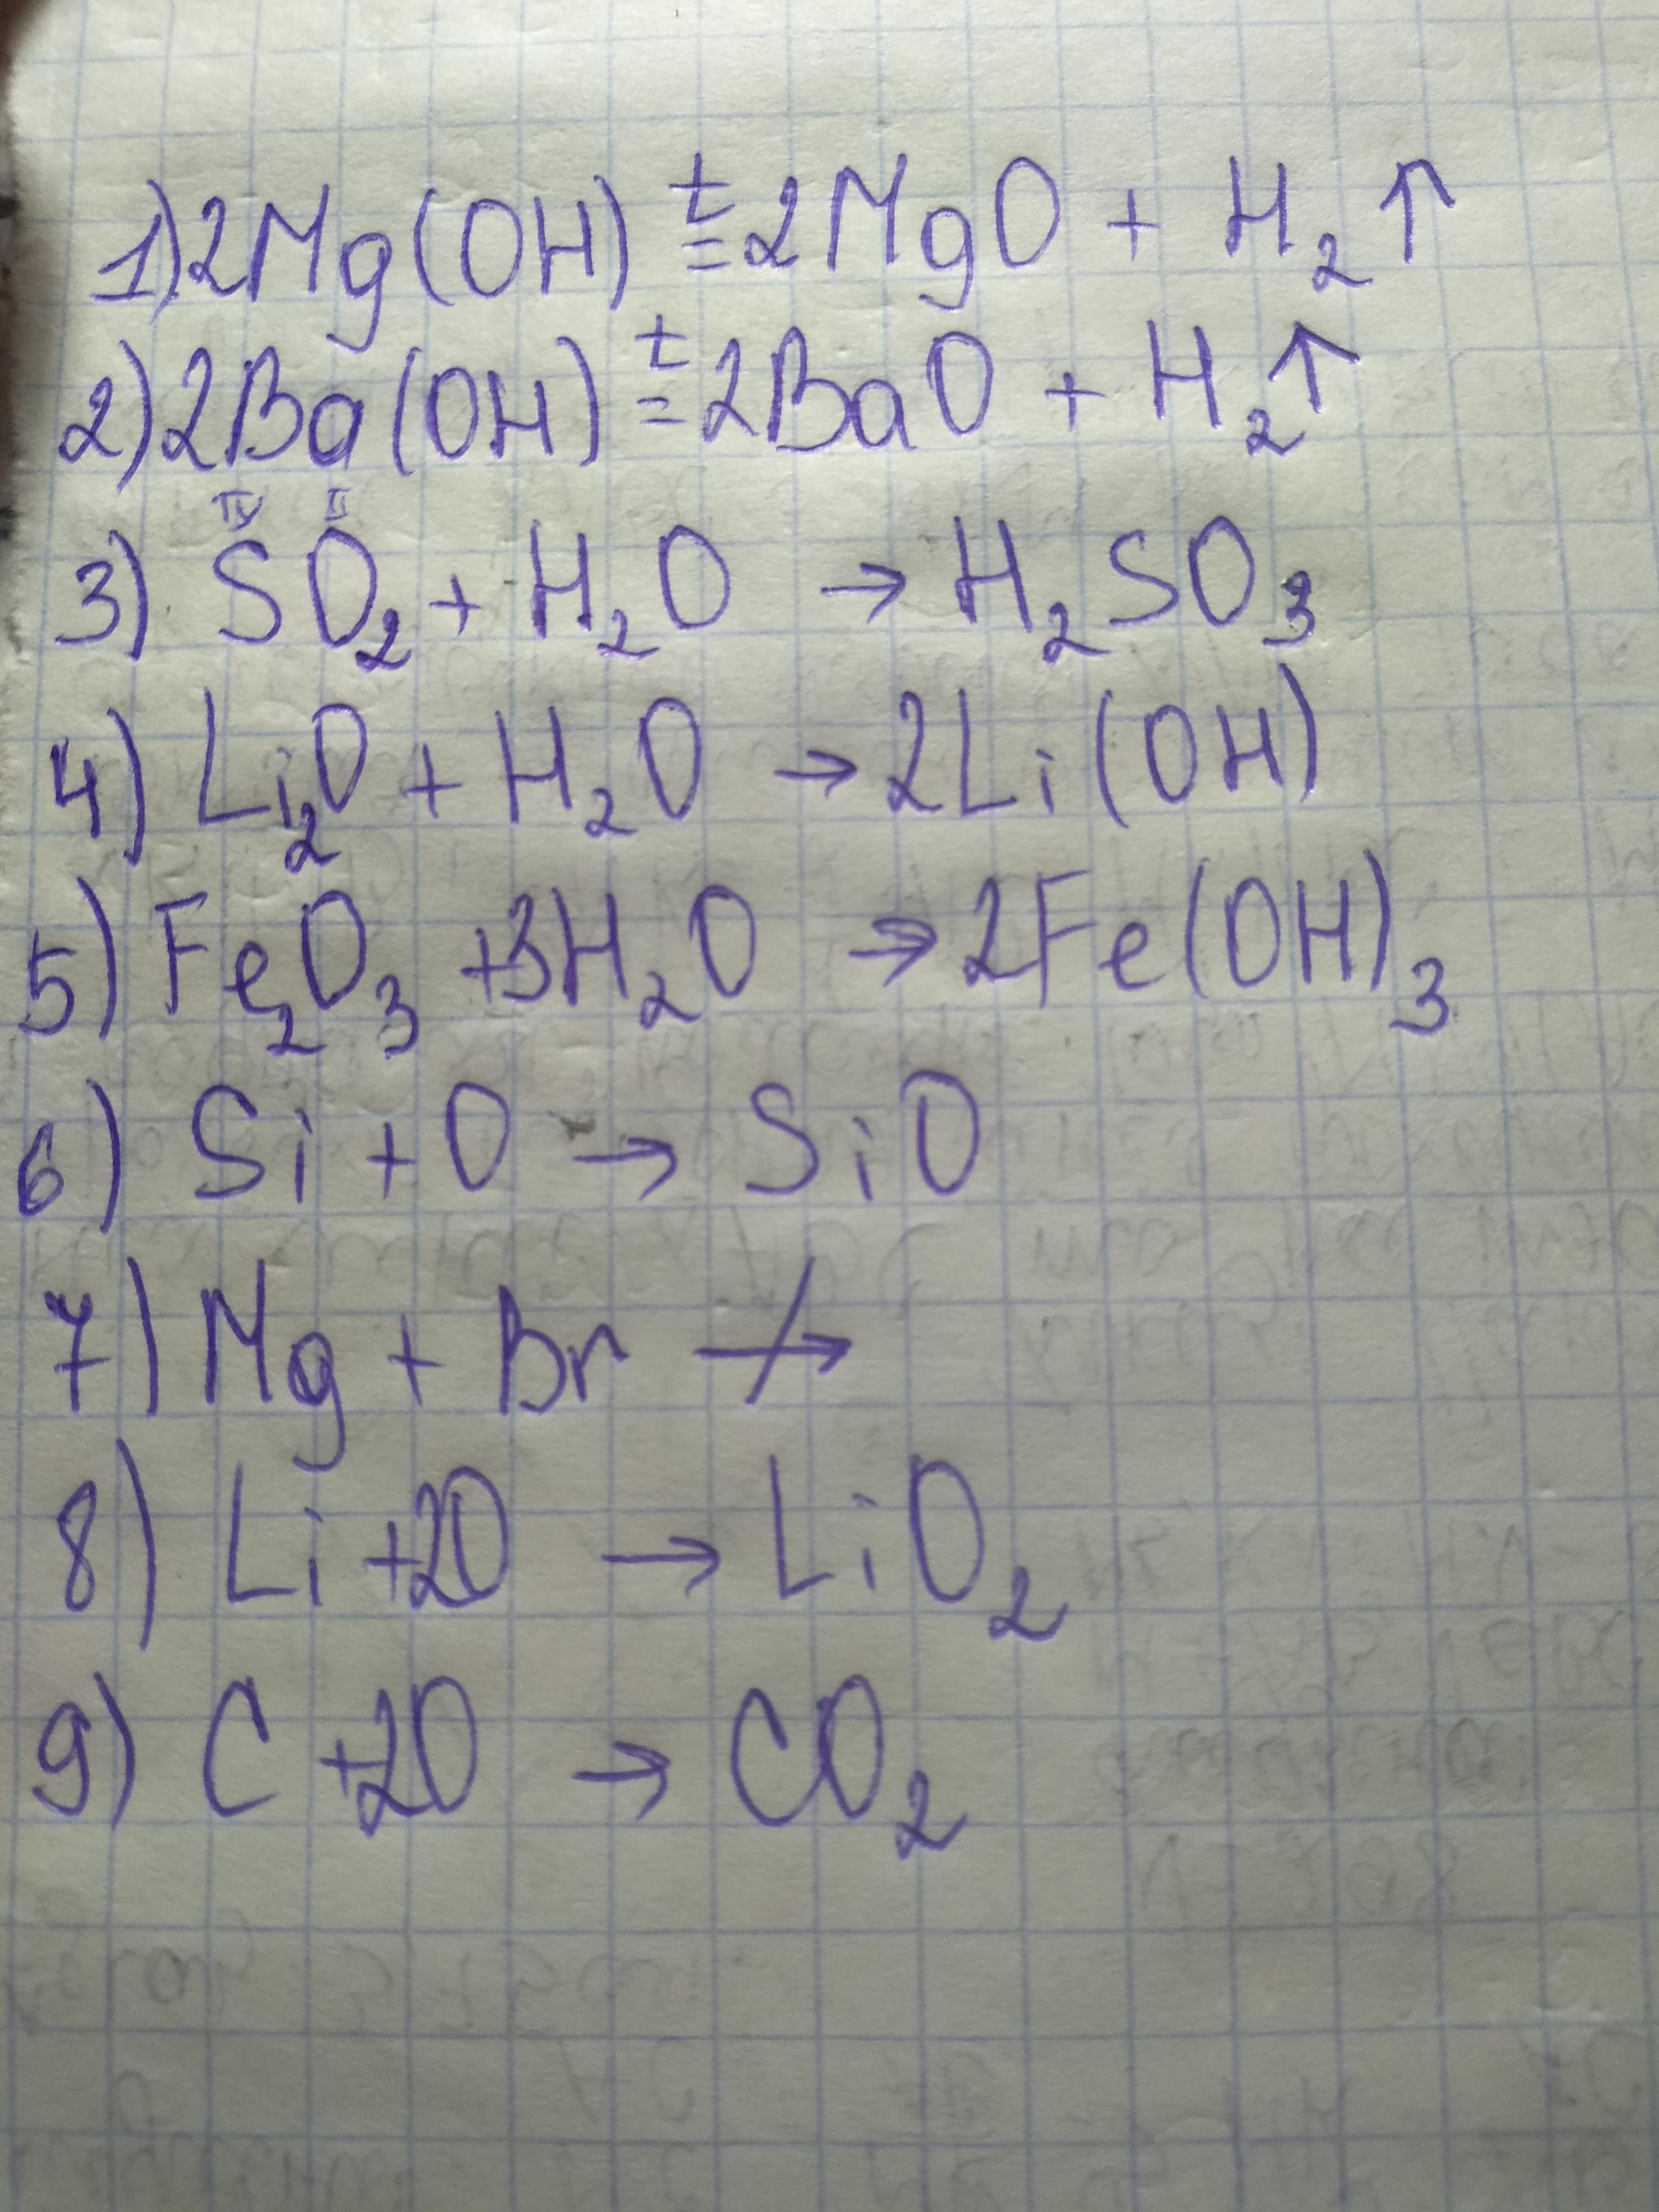 1) 2Mg(OH) t= 2MgO + H₂↑
2) 2Ba(OH) t= 2BaO + H₂↑
IV II
3) SO₂ + H₂O → H₂SO₃
4) Li₂O + H₂O → 2Li(OH)
5) Fe₂O₃ +3H₂O → 2Fe(OH)₃
6) Si + O → SiO
7) Mg + Br ↛
8) Li +2O → LiO₂
9) C +2O → CO₂